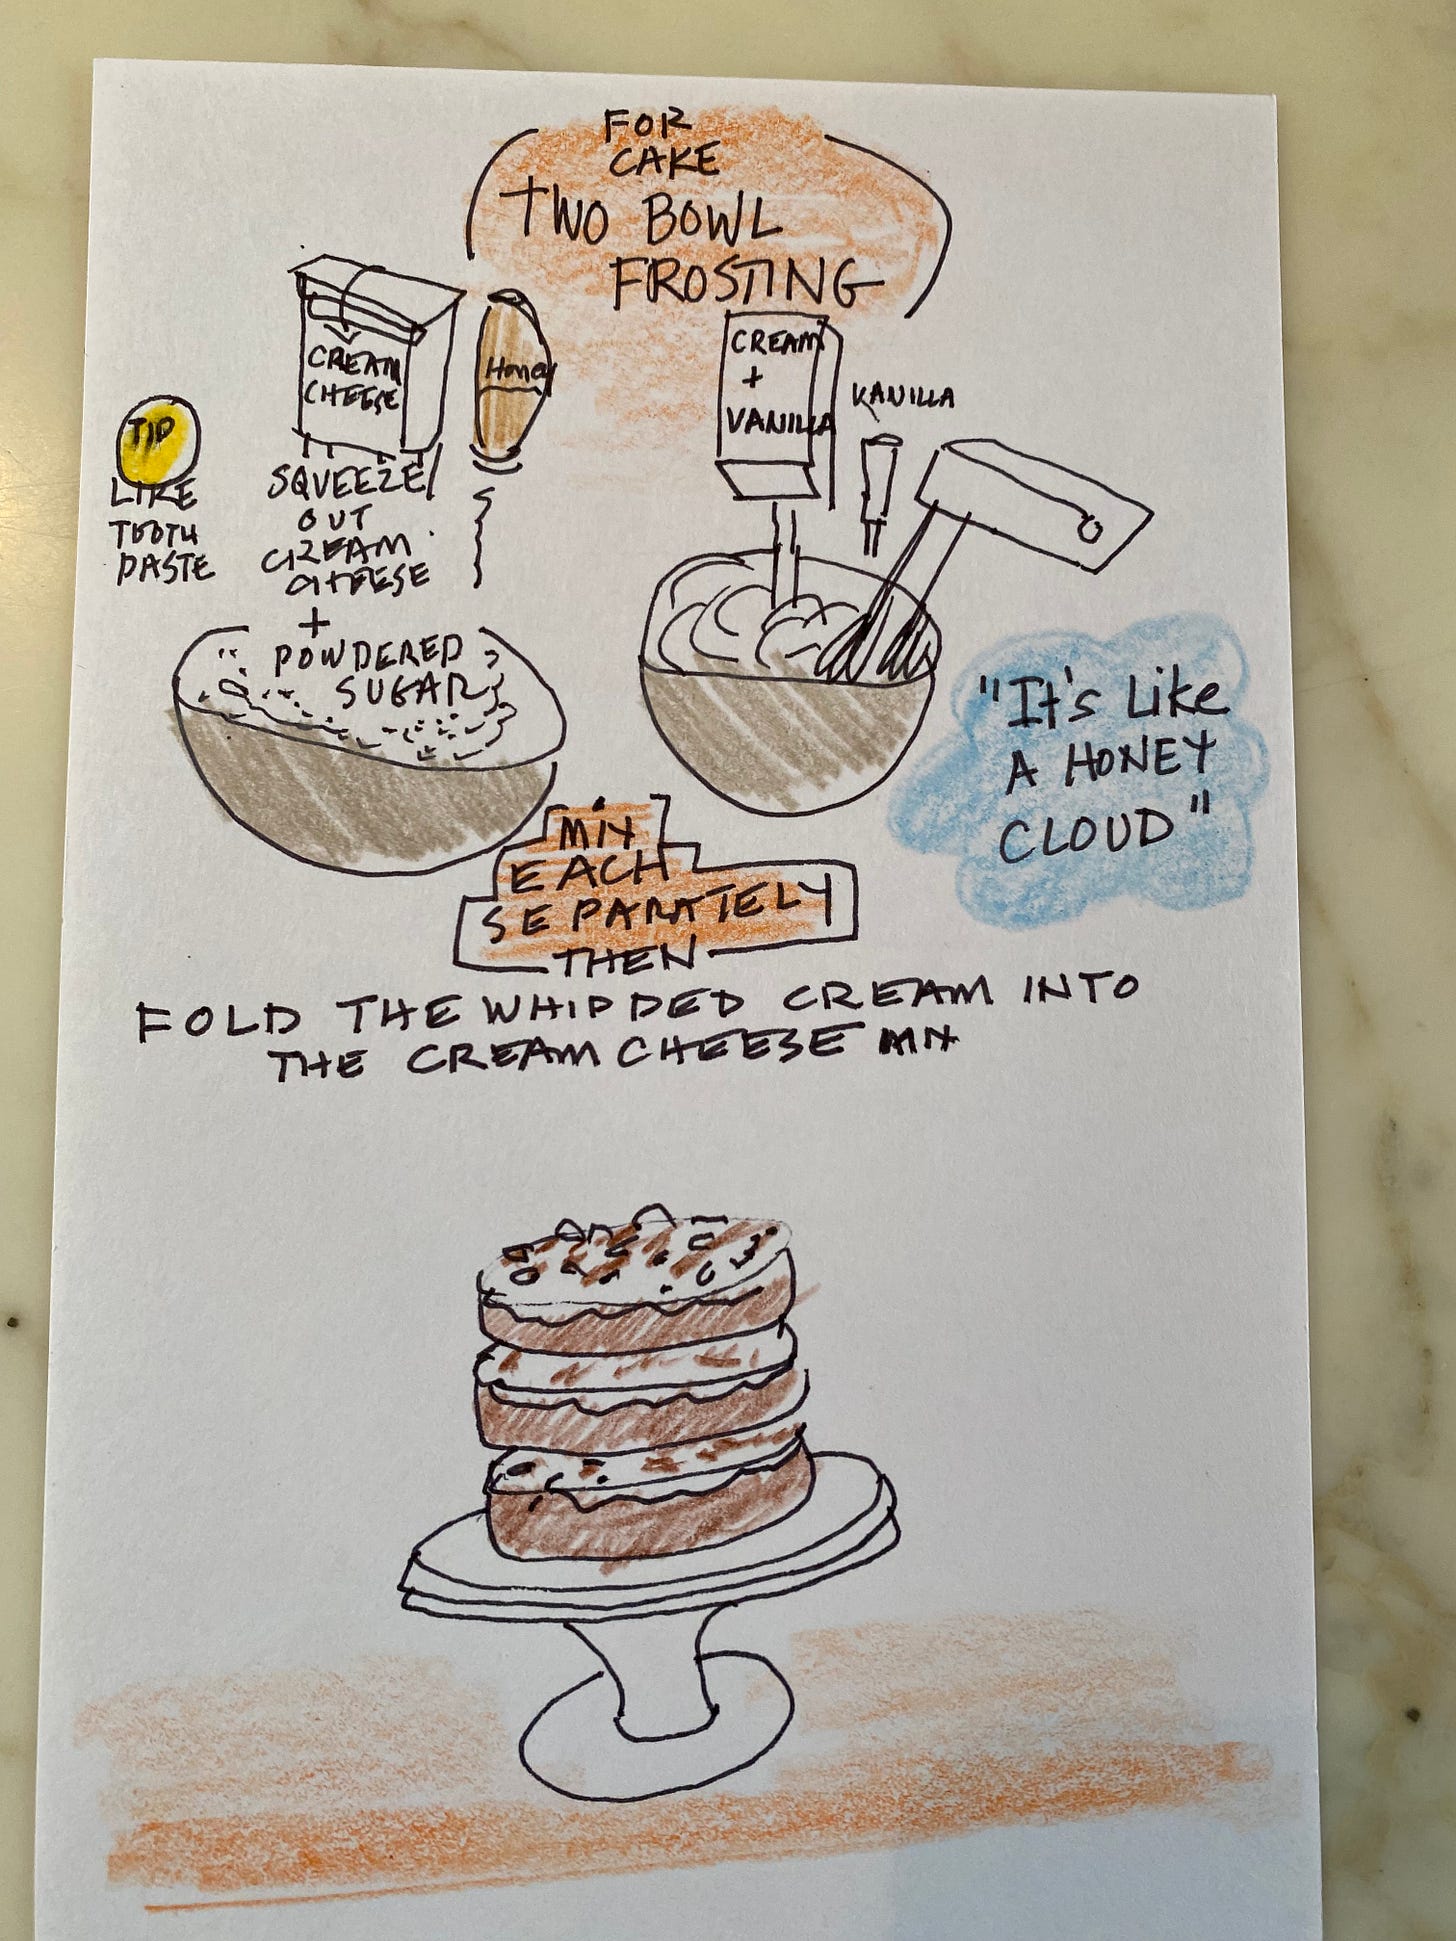 FOR
CAKE
TWO BOWL
FROSTING
CREAM
CHEESE
Honey
TIP
LIKE
TOOTH
PASTE
SQUEEZE
OUT
CREAM
CHEESE
+
POWDERED
SUGAR
CREAM
+
VANILLA
VANILLA
"It's Like
A HONEY
CLOUD"
MIX
EACH
SEPARATELY
THEN
FOLD THE WHIPPED CREAM INTO
THE CREAM CHEESE MIX